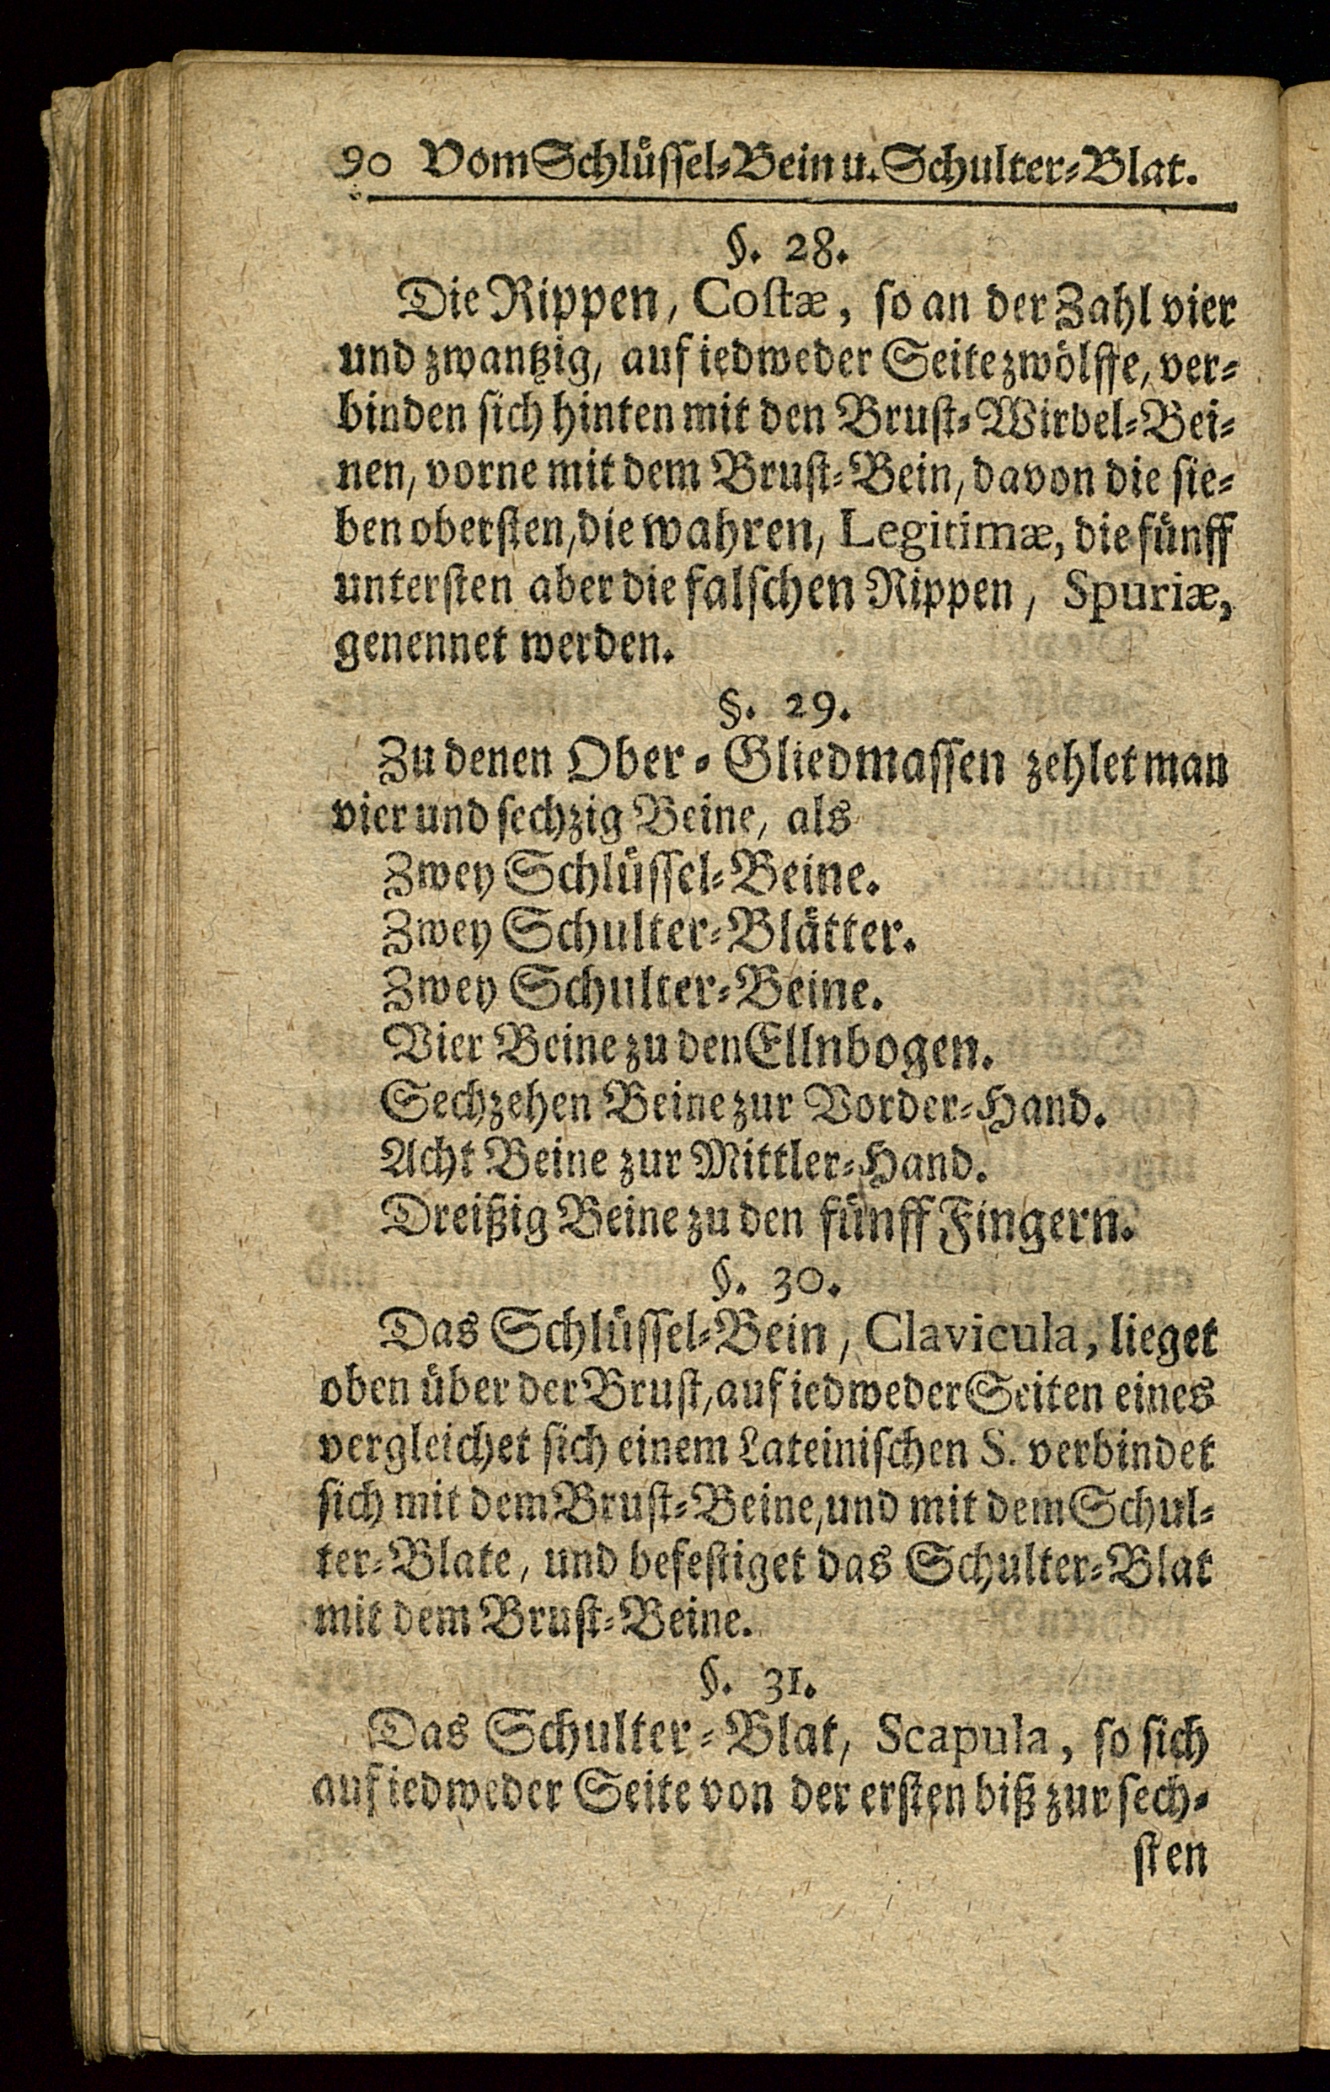 90 Vom Schlüssel-Bein u. Schulter-Blat.
§. 28.
Die Rippen, Costæ, so an der Zahl vier
und zwantzig, auf iedweder Seite zwölffe, ver-
binden sich hinten mit den Brust-Wirbel-Bei-
nen, vorne mit dem Brust-Bein, davon die sie-
ben obersten, die wahren, Legitimæ, die fünff
untersten aber die falschen Rippen, Spuriæ,
genennet werden.
§. 29.
Zu denen Ober-Gliedmassen zehlet man
vier und sechzig Beine, als
Zwey Schlüssel-Beine.
Zwey Schulter-Blätter.
Zwey Schulter-Beine.
Vier Beine zu den Ellnbogen.
Sechzehen Beine zur Vorder-Hand.
Acht Beine zur Mittler-Hand.
Dreißig Beine zu den fünff Fingern.
§. 30.
Das Schlüssel-Bein, Clavicula, lieget
oben über der Brust, auf iedweder Seiten eines
vergleichet sich einem Lateinischen S. verbindet
sich mit dem Brust-Beine, und mit dem Schul-
ter-Blate, und befestiget das Schulter-Blat
mit dem Brust-Beine.
§. 31.
Das Schulter-Blat, Scapula, so sich
auf iedweder Seite von der ersten biß zur sech-
sten